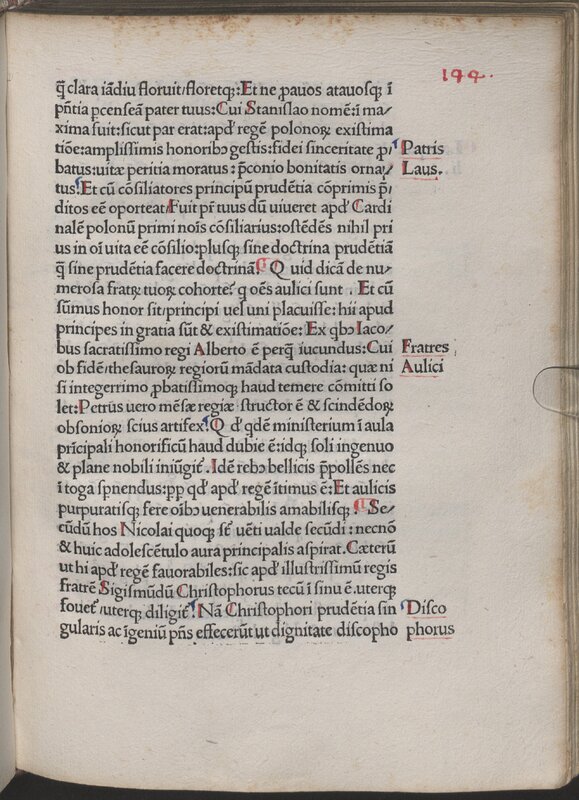 144.
q̃ clara iãdiu floruit/floretq;: Et ne ꝓauos atauosq; ĩ
p̃ntia ꝑcenseã pater tuus: Cui Stanislao nomẽ: ĩ ma/
xima fuit: sicut par erat: apd' regẽ polonoꝝ existima
tiõe: amplissimis honoribꝰ gestis: fidei sinceritate ꝓ/
batus: uitæ peritia moratus: p̃conio bonitatis orna/
tus. Et cũ cõsiliatores principũ prudẽtia cõprimis p̃/
ditos eẽ oporteat/Fuit pr̃ tuus dũ uiueret apd' Cardi
nalẽ polonũ primi nois̃ cõsiliarius: ostẽdẽs nihil pri
us in oĩ uita eẽ cõsilio: plusq; sine doctrina prudẽtiã
q̃ sine prudẽtia facere doctrinã. Q uid dicã de nu/
merosa fratꝝ tuoꝝ cohorte? q oẽs aulici sunt . Et cũ
sũmus honor sit/principi uel uni placuisse: hii apud
principes in gratia sũt & existimatiõe: Ex qbꝰ Iaco/
bus sacratissimo regi Alberto ẽ perq̃ iucundus: Cui
ob fidẽ/thesauroꝝ regiorũ mãdata custodia: quæ ni
si integerrimo ꝓbatissimoq; haud temere cõmitti so
let: Petrus uero mẽsæ regiæ structor ẽ & scindẽdoꝝ
obsonioꝝ scius artifex. Q d' qdẽ ministerium ĩ aula
prĩcipali honorificũ haud dubie ẽ: idq; soli ingenuo
& plane nobili iniũgit̃. Idẽ rebꝰ bellicis p̃pollẽs nec
ĩ toga spnendus: pp qd' apd' regẽ ĩtimus ẽ: Et aulicis
purpuratisq; fere oĩbꝰ uenerabilis amabilisq;. Se/
cũdũ hos Nicolai quoq; st̃ uẽti ualde secũdi: necnõ
& huic adolescẽtulo aura principalis aspirat. Cæterũ
ut hi apd' regẽ fauorabiles: sic apd' illustrissimũ regis
fratrẽ Sigismũdũ Christophorus tecũ ĩ sinu ẽ. uterq;
fouet̃/uterq; diligit̃. Nã Christophori prudẽtia sin
gularis ac ĩgeniũ p̃ns effecerũt ut dignitate discopho
Patris
Laus.
Fratres
Aulici
Disco
phorus